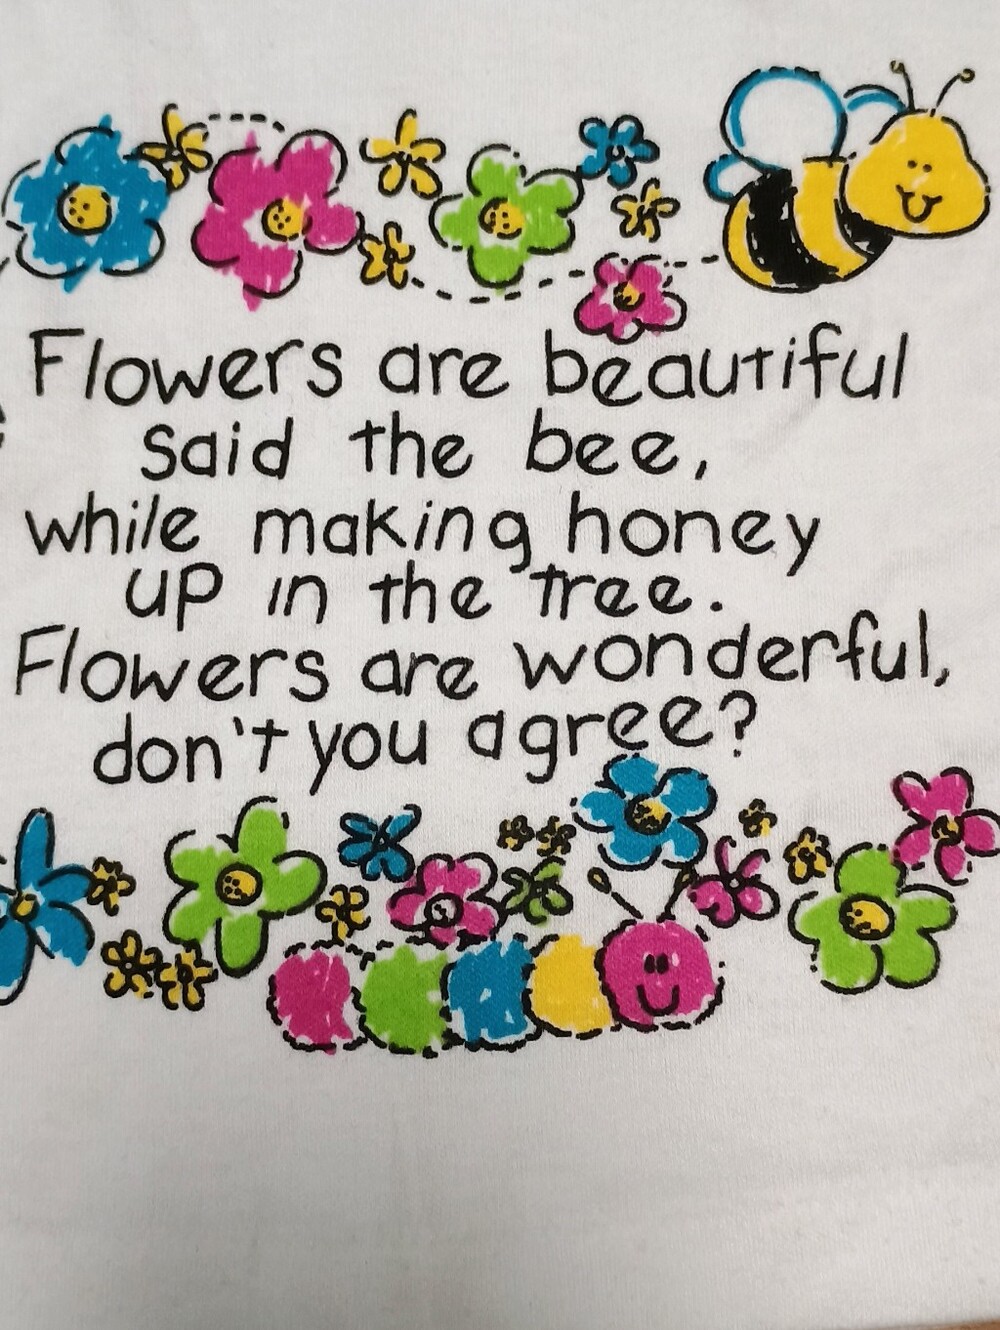 Flowers are beautiful
said the bee,
while making honey
up in the tree.
Flowers are wonderful,
don't you agree?